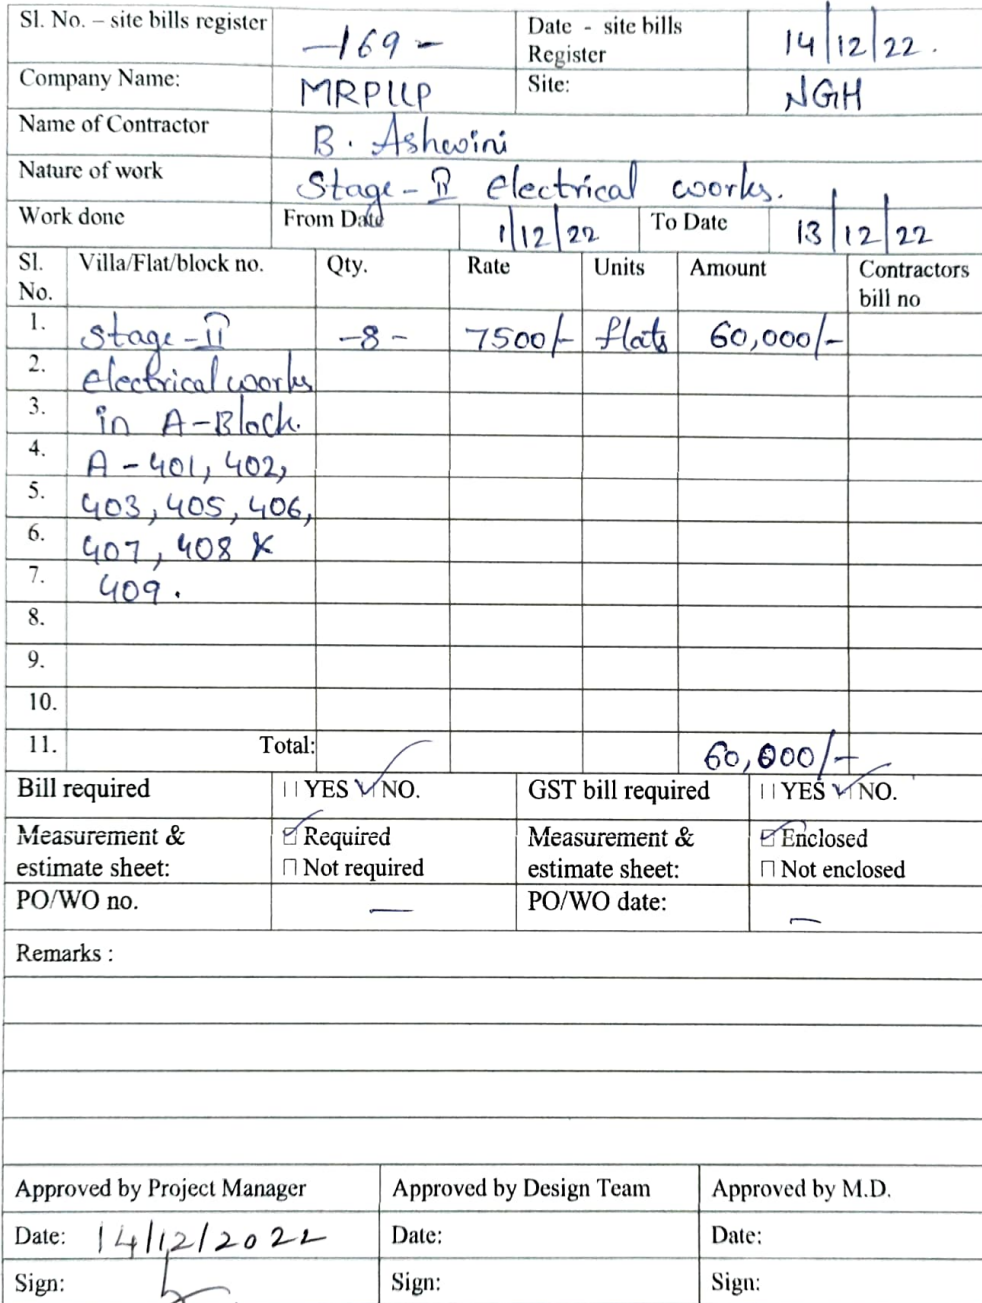 Sl. No. – site bills register -169- Date - site bills Register 14/12/22.
Company Name: MRPLLP Site: NGH
Name of Contractor B. Ashwini
Nature of work Stage-II electrical works.
Work done From Date 1/12/22 To Date 13/12/22
Sl. No. Villa/Flat/block no. Qty. Rate Units Amount Contractors bill no
1. Stage-II -8- 7500/- flats 60,000/-
2. electrical works
3. in A-Block.
4. A-401, 402,
5. 403, 405, 406,
6. 407, 408 &
7. 409.
8.
9.
10.
11. Total: 60,000/-
Bill required YES NO. GST bill required YES NO.
Measurement & estimate sheet: Required Measurement & estimate sheet: Enclosed
Not required Not enclosed
PO/WO no. — PO/WO date: —
Remarks :
Approved by Project Manager Approved by Design Team Approved by M.D.
Date: 14/12/2022 Date: Date:
Sign: Sign: Sign: